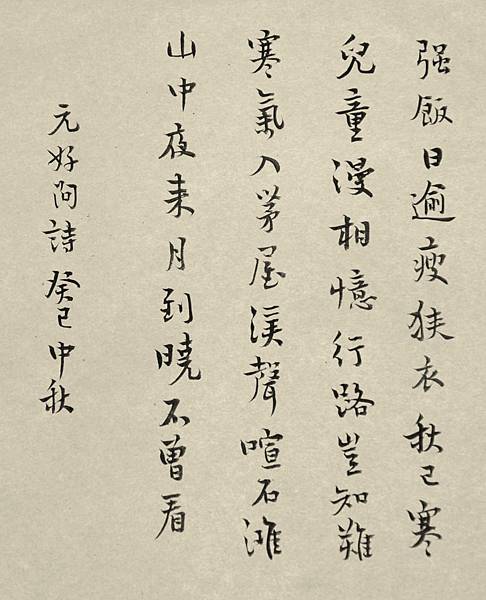 强飯日逾瘦狹衣秋已寒
兒童漫相憶行路豈知難
寒氣入茅屋溪聲喧石灘
山中夜来月到曉不曾看
元好问詩癸巳中秋